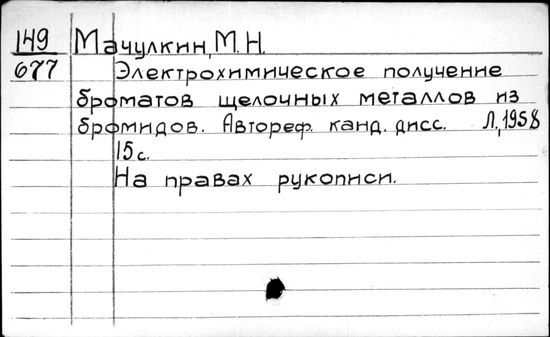 149 Мачулкин, М. Н.
677 Электрохимическое получение
броматов щелочных металлов из
бромидов. Автореф. канд. дисс. Л., 1958
15 с.
На правах рукописи.